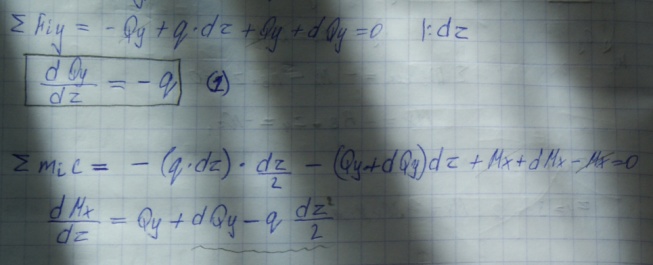 Σ Fiy = - Qy + q · dz + Qy + dQy = 0 |: dz
dQy/dz = - q (1)
Σ mic = - (q · dz) · dz/2 - (Qy + dQy) dz + Mx + dMx - Mx = 0
dMx/dz = Qy + dQy - q dz²/2